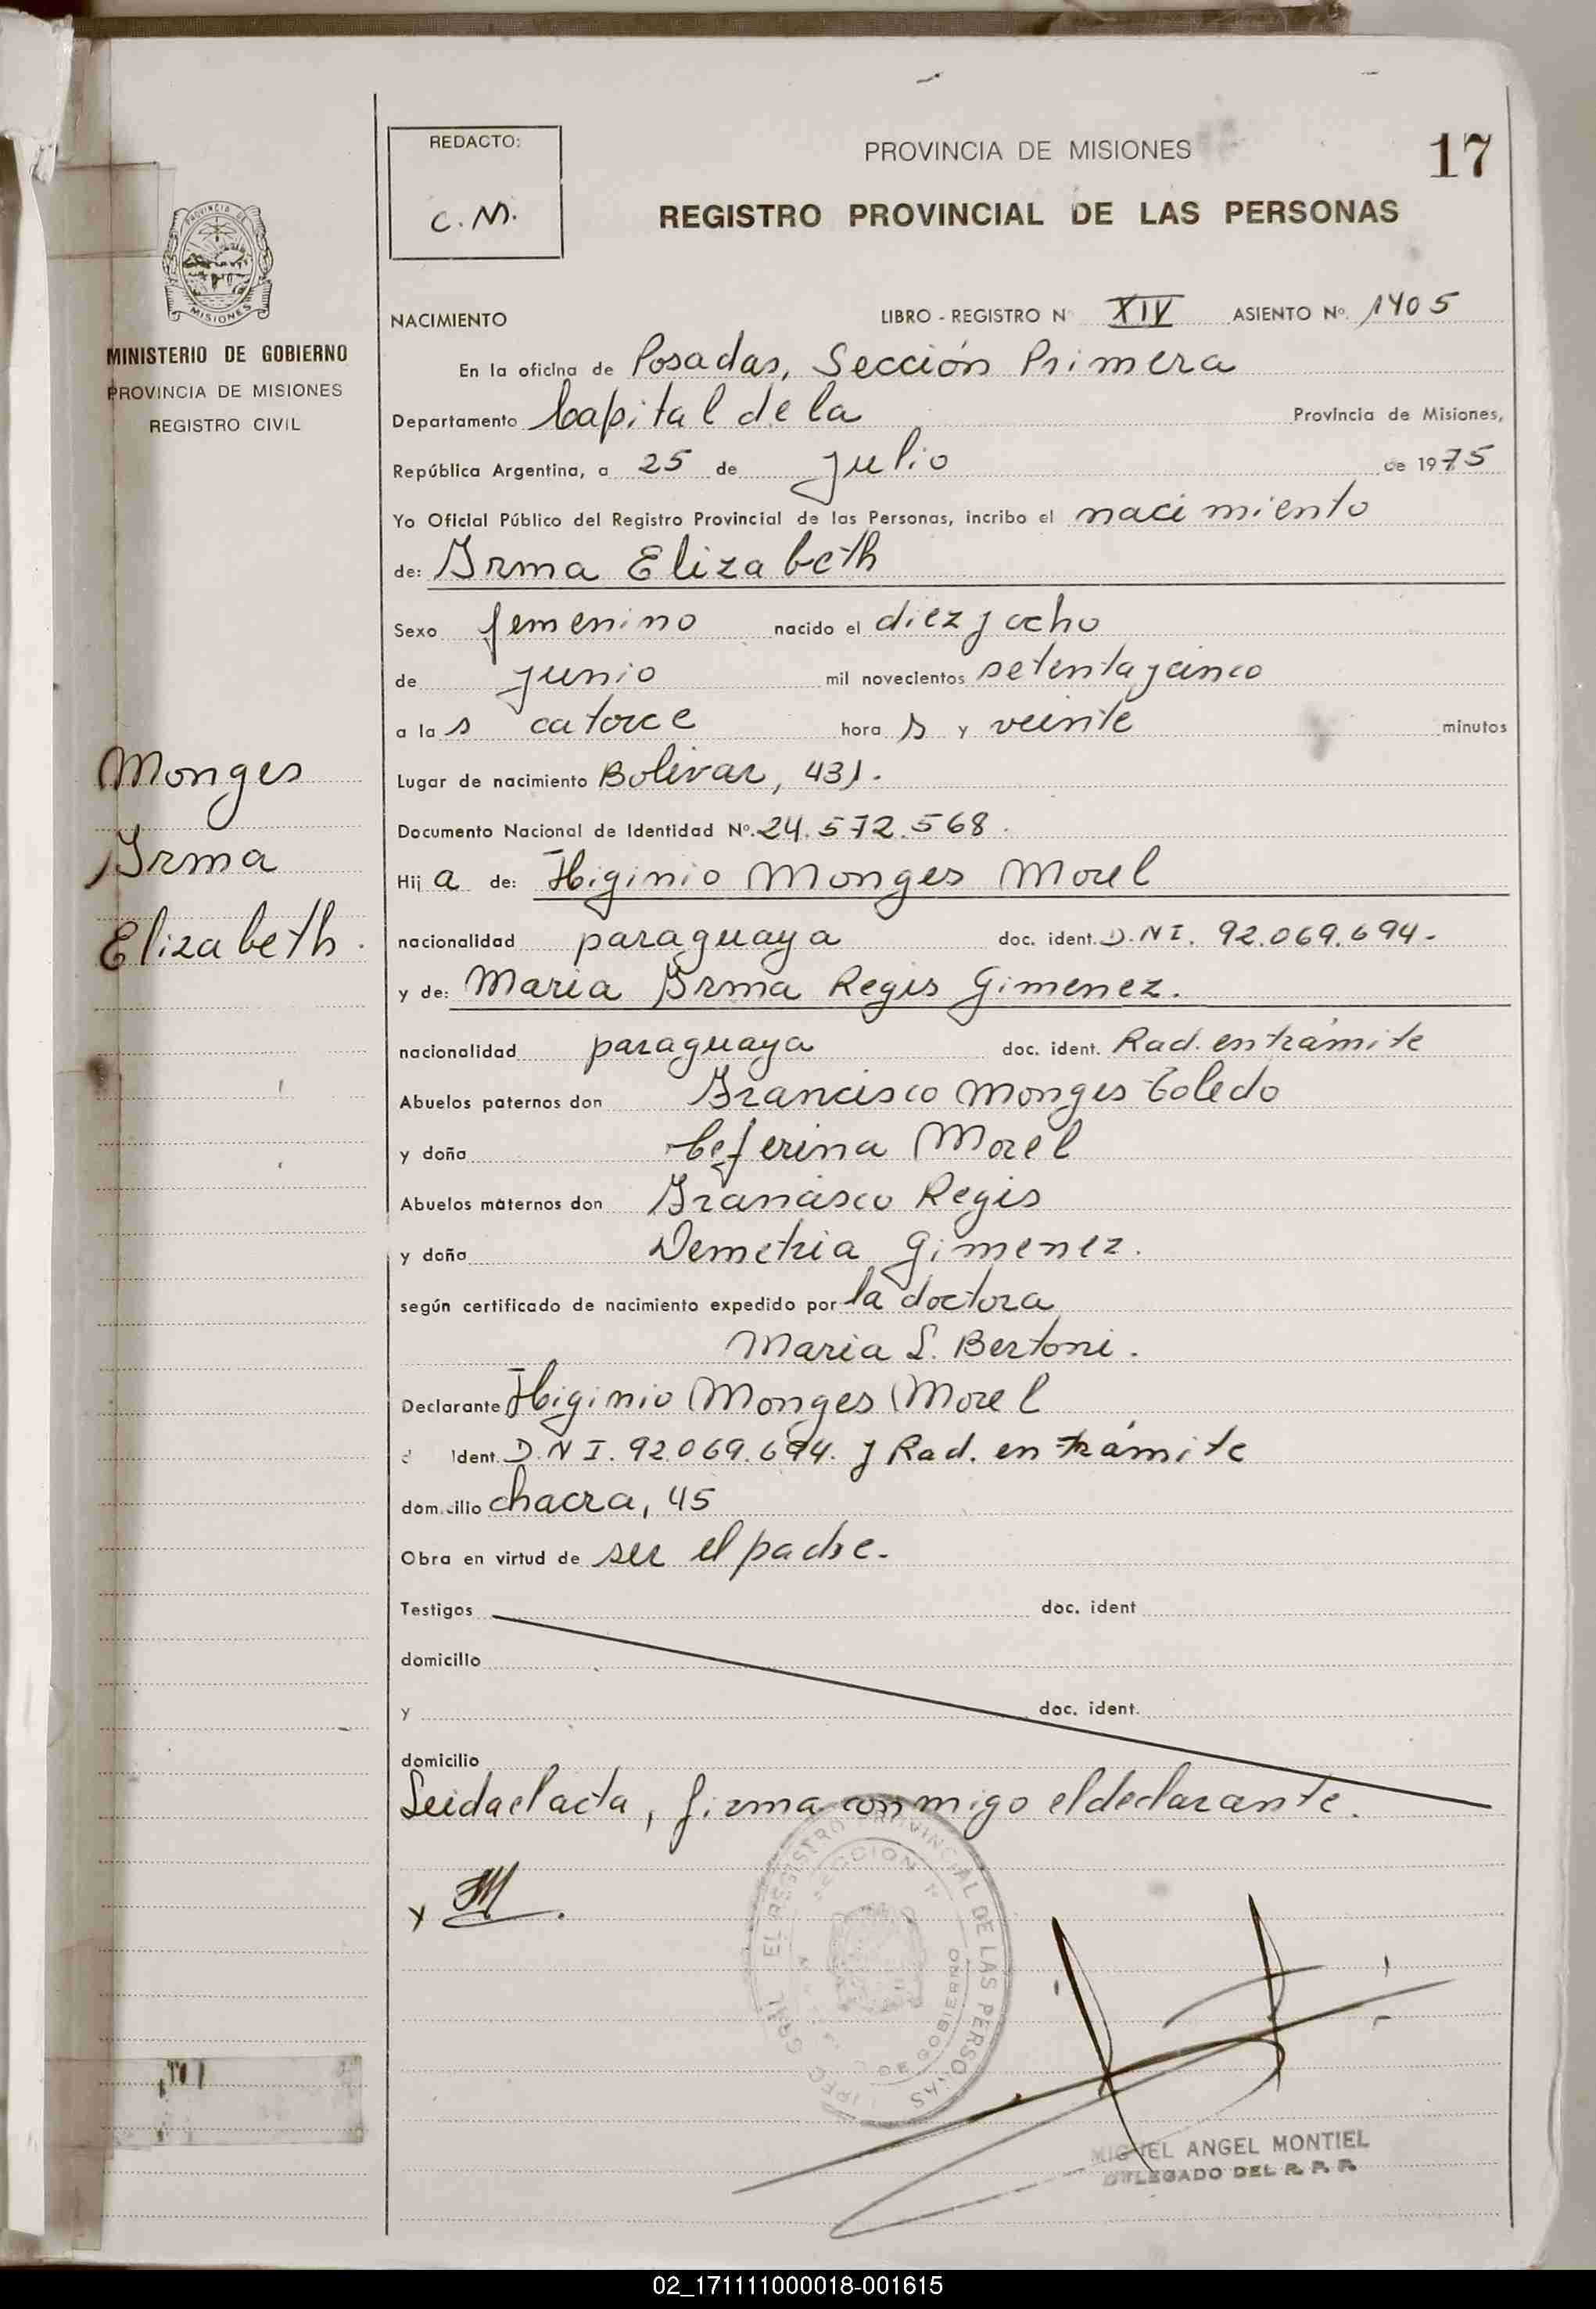 REDACTO:
C. M.
PROVINCIA DE MISIONES
17
REGISTRO PROVINCIAL DE LAS PERSONAS
PROVINCIA DE
MISIONES
MINISTERIO DE GOBIERNO
PROVINCIA DE MISIONES
REGISTRO CIVIL
NACIMIENTO LIBRO - REGISTRO N XIV ASIENTO Nº. 1405
En la oficina de Posadas, Sección Primera
Departamento Capital de la Provincia de Misiones,
República Argentina, a 25 de julio de 1975
Yo Oficial Público del Registro Provincial de las Personas, incribo el nacimiento
de: Irma Elizabeth
Sexo femenino nacido el diez y ocho
de junio mil novecientos setenta y cinco
a la s catorce hora s y veinte minutos
Monges
Irma
Elizabeth.
Lugar de nacimiento Bolivar, 431.
Documento Nacional de Identidad Nº. 24.572.568.
Hij a de: Higinio Monges Morel
nacionalidad paraguaya doc. ident. D.N I. 92.069.694.
y de: Maria Irma Regis Gimenez.
nacionalidad paraguaya doc. ident. Rad. en trámite
Abuelos paternos don Francisco Monges Toledo
y doña Ceferina Morel
Abuelos maternos don Francisco Regis
y doña Demetria Gimenez.
según certificado de nacimiento expedido por la doctora
Maria L. Bertoni.
Declarante Higinio Monges Morel
d Ident. D.N I. 92.069.694. y Rad. en trámite
domicilio chacra, 45
Obra en virtud de ser el padre.
Testigos doc. ident
domicilio
y doc. ident.
domicilio
Leida el acta, firma conmigo el declarante.
x
EL REGISTRO PROVINCIAL DE LAS PERSONAS
SECCION 1ª
DE GOBIERNO
GRAL
MIGUEL ANGEL MONTIEL
DELEGADO DEL R. P. P.
02_171111000018-001615